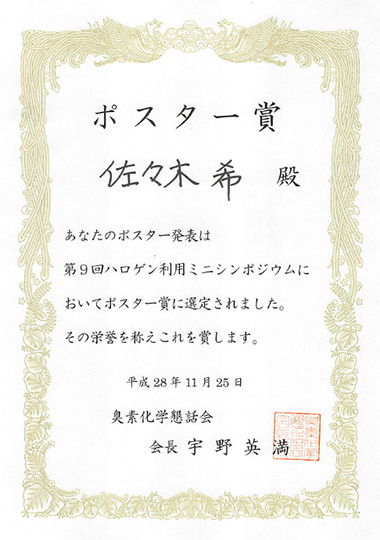 ポスター賞
佐々木 希 殿
あなたのポスター発表は
第9回ハロゲン利用ミニシンポジウムに
おいてポスター賞に選定されました。
その栄誉を称えこれを賞します。
平成28年11月25日
臭素化学懇話会
会長 宇野英満